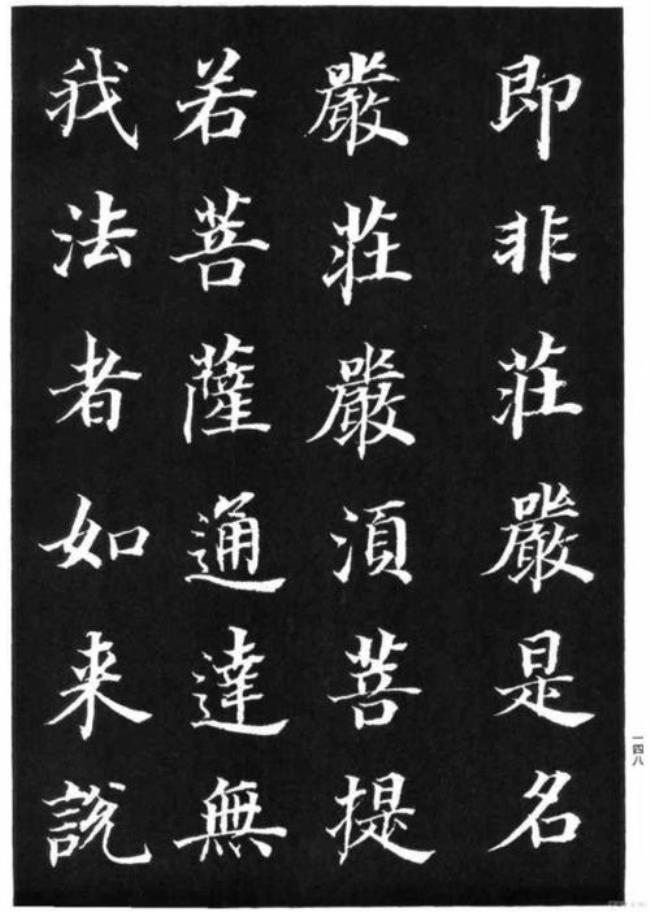 即非莊嚴是名
嚴莊嚴湏菩提
若菩薩通達無
我法者如来說
一四八